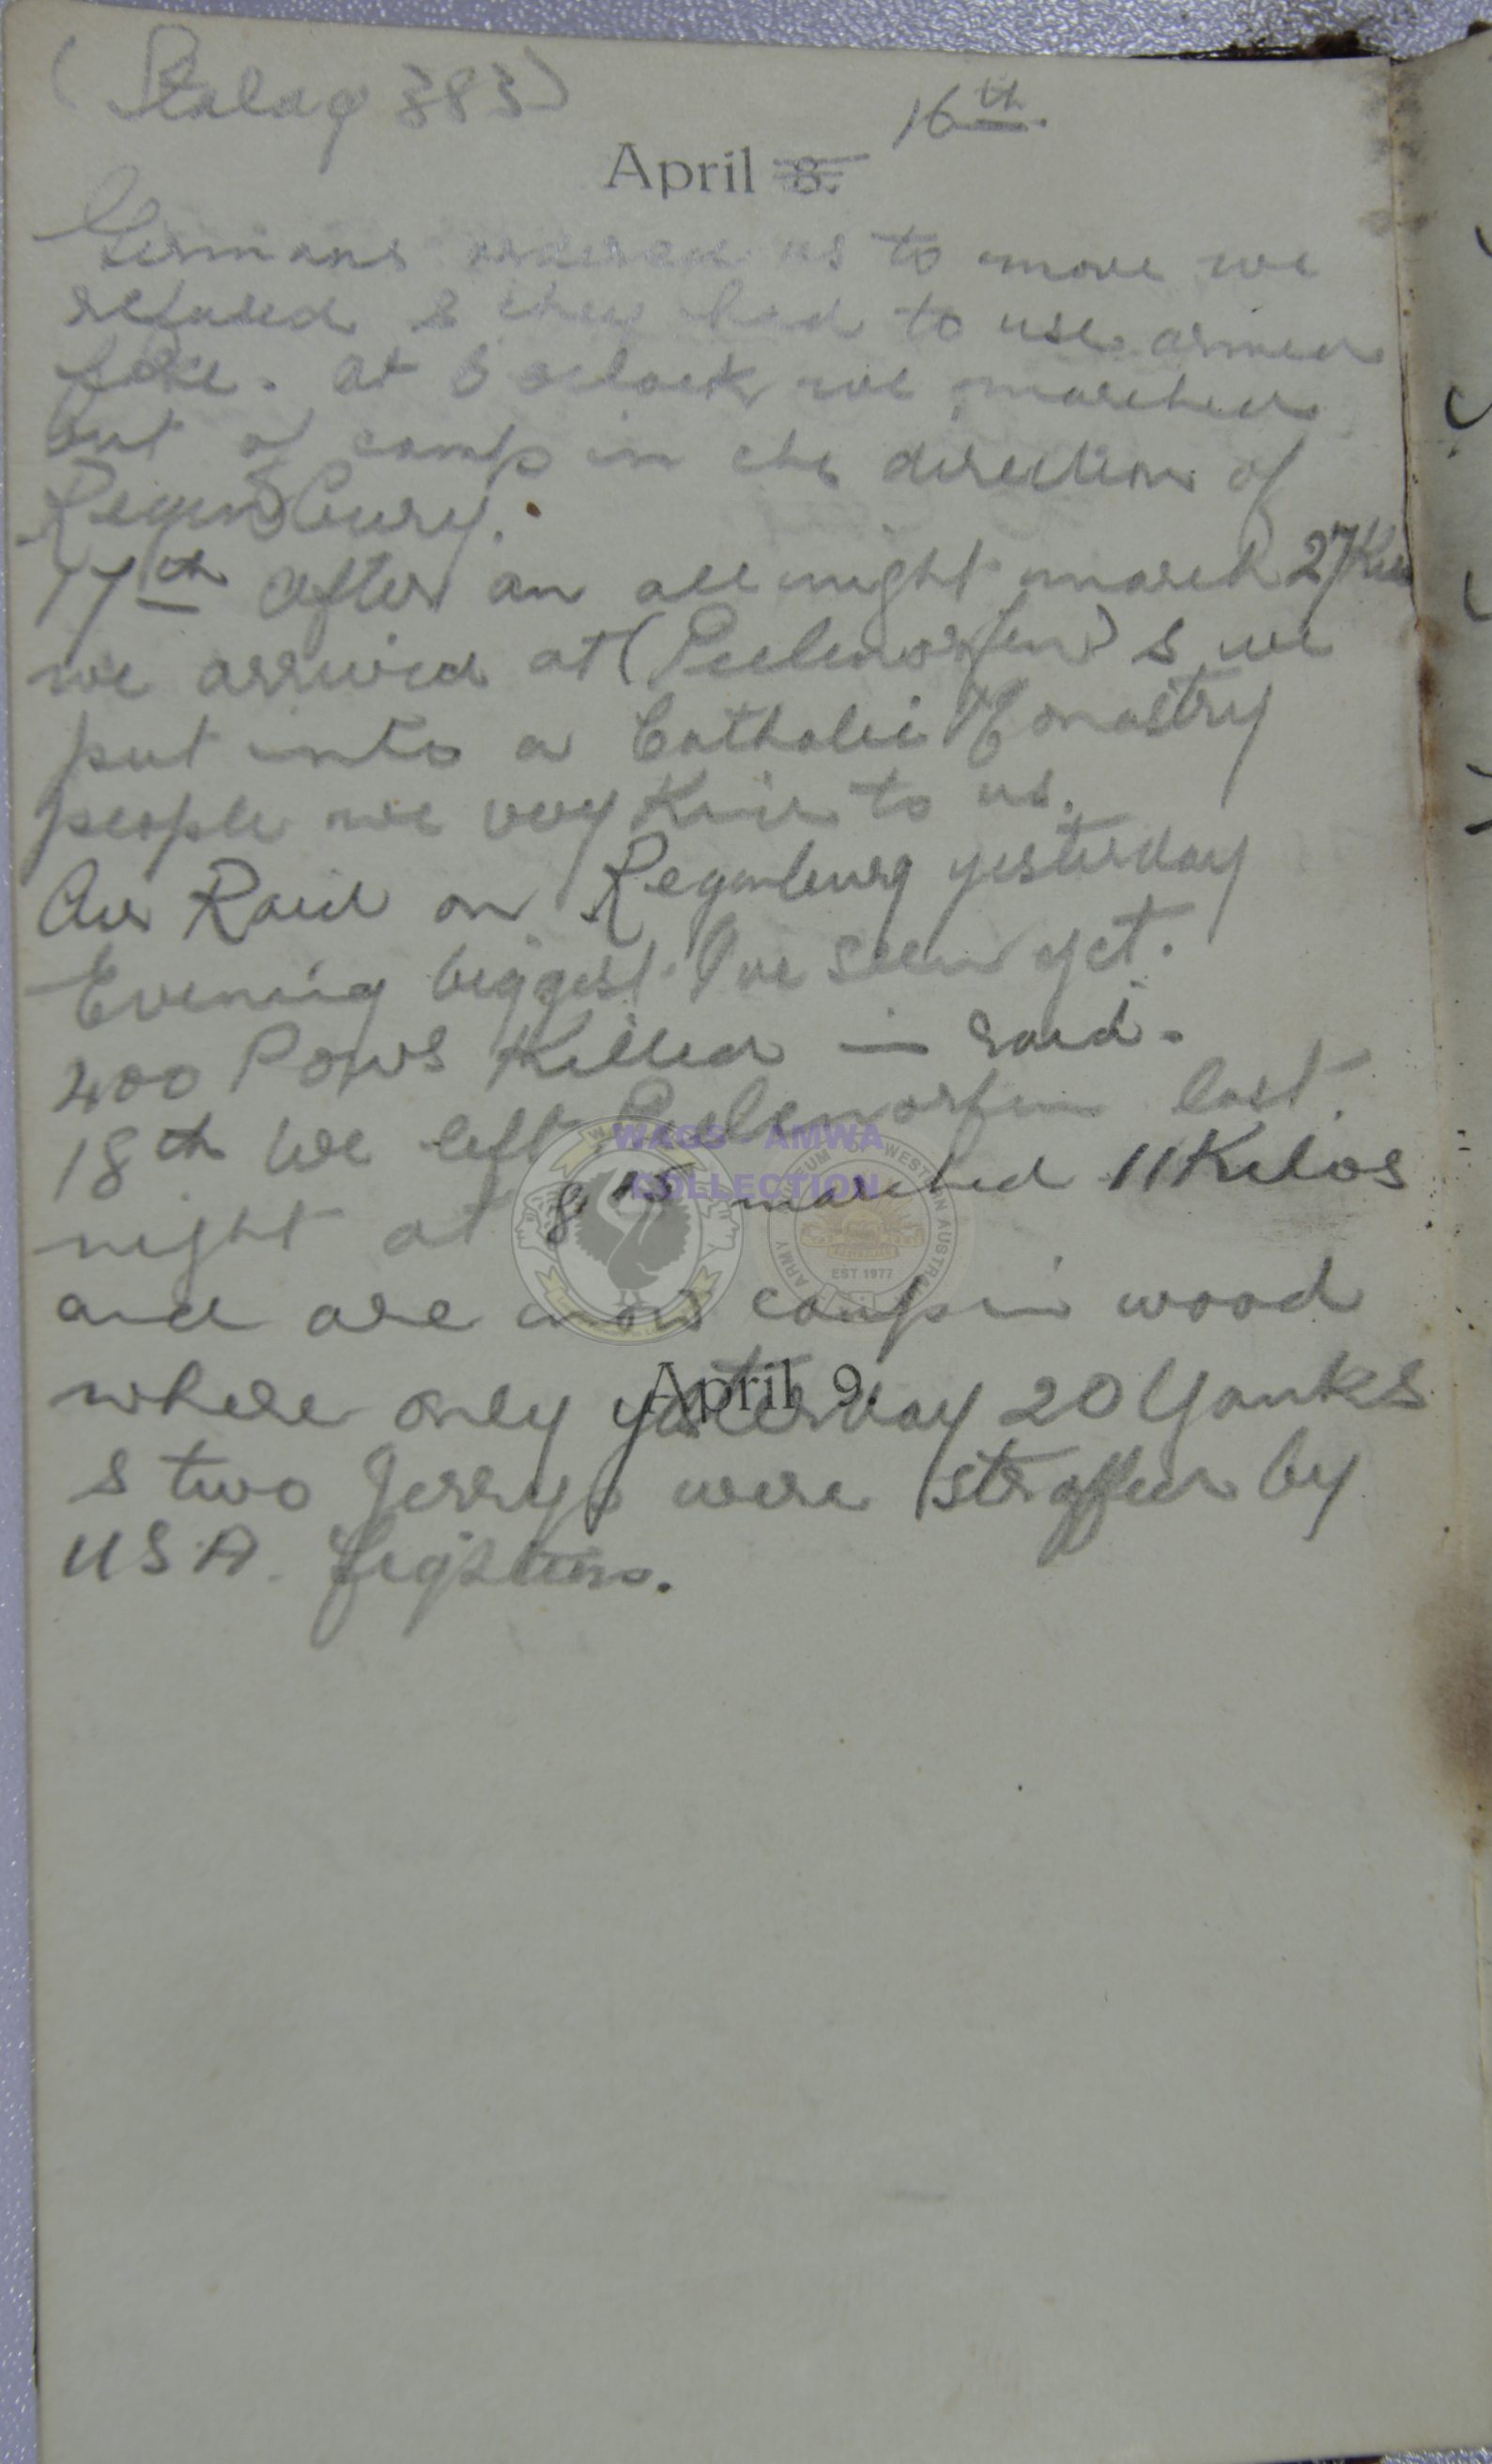 (Stalag 383)
16th.
April 8.
Germans ordered us to move we
refused & they had to use armed
force. at 5 oclock we marched
out of camp in the direction of
Regensburg.
17th after an all night march 27 Kilo
we arrived at ( ) & we
put into a Catholic Monastry
people we very kind to us.
Air Raid on Regenburg yesterday
Evening biggest I've seen yet.
400 Pows killed in raid.
18th We left last
night at 8 15 marched 11 Kilos
and are now camp in wood
April 9.
where only yesterday 20 Yanks
& two Jerrys were straffed by
USA. fighters.
WAGS - AMWA
COLLECTION
EST 1977